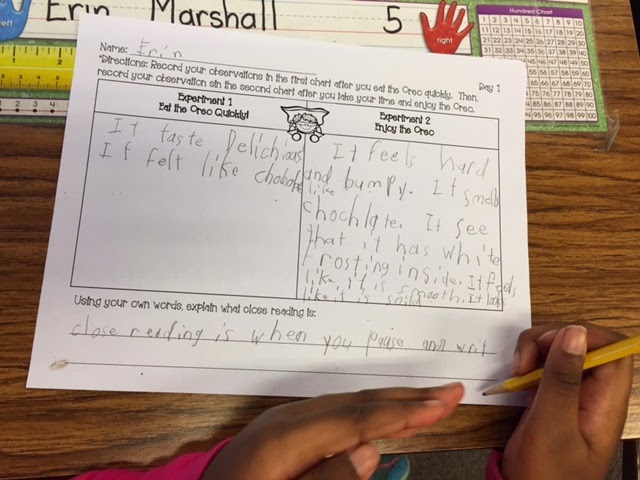 Erin Marshall 5
left
right
Hundred Chart
Name: Erin
Day 1
*Directions: Record your observations in the first chart after you eat the Oreo quickly. Then,
record your observation sin the second chart after you take your time and enjoy the Oreo.
Experiment 1
Eat the Oreo Quickly!
It taste Delichious
If felt like
Experiment 2
Enjoy the Oreo
It feels hard
and bumpy. It smells
like
chochlate. It see
that it has white
frosting inside. It feels
like it is smooth. It looks
like it is
Using your own words, explain what close reading is:
close reading is when you pause and writ